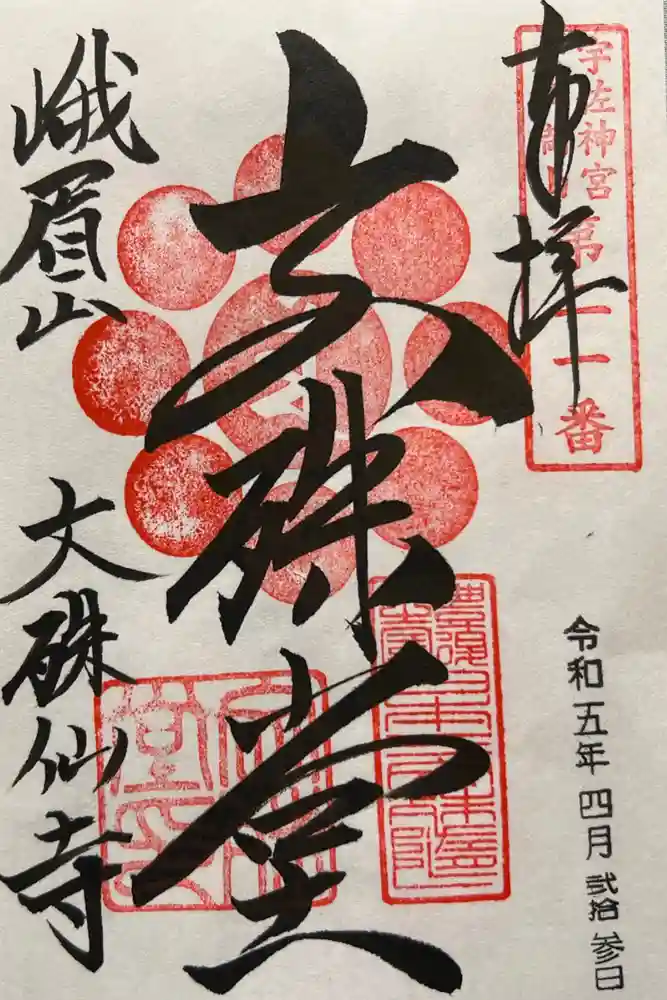 奉拝
宇佐神宮
第二一番
文殊堂
峨眉山
文殊仙寺
令和五年四月弐拾参日